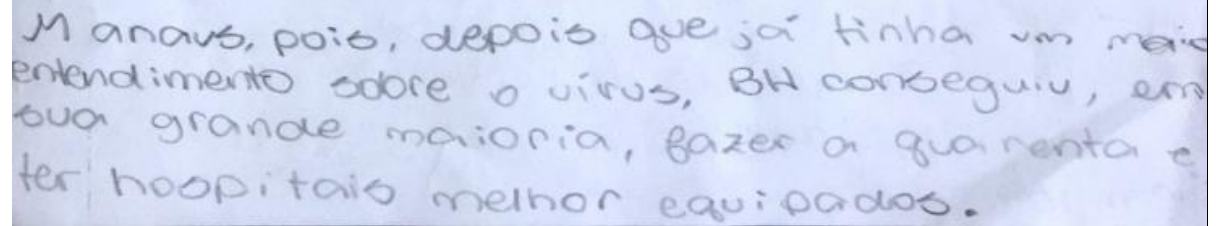 Manaus, pois, depois que já tinha um maio
entendimento sobre o vírus, BH conseguiu, em
sua grande maioria, fazer a quarenta e
ter hospitais melhor equipados.